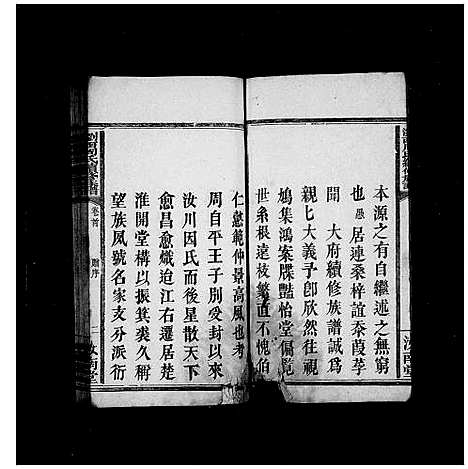 本源之有自繼述之無窮
也愚居連桑梓誼忝葭莩
聞 大府續修族譜誠為
親匕大義予卽欣然往視
鳩集鴻案牒豔怡堂偏覧
世系根遠枝繁直不愧伯
仁懿範仲景高風也考
周自平王子別受封以來
汝川因氏而後星散天下
愈昌愈熾迨江右遷居楚
淮開堂構以振箕裘久稱
望族風號名家支分派衍
卷首